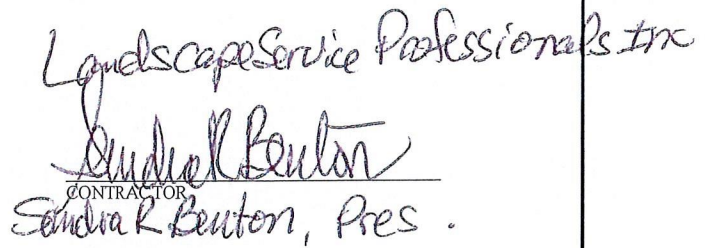 Landscape Service Professionals Inc
Sandra R Benton
CONTRACTOR
Sandra R Benton, Pres.